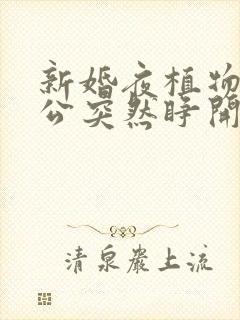 新婚夜植物
公突然睁開
清泉巖上流